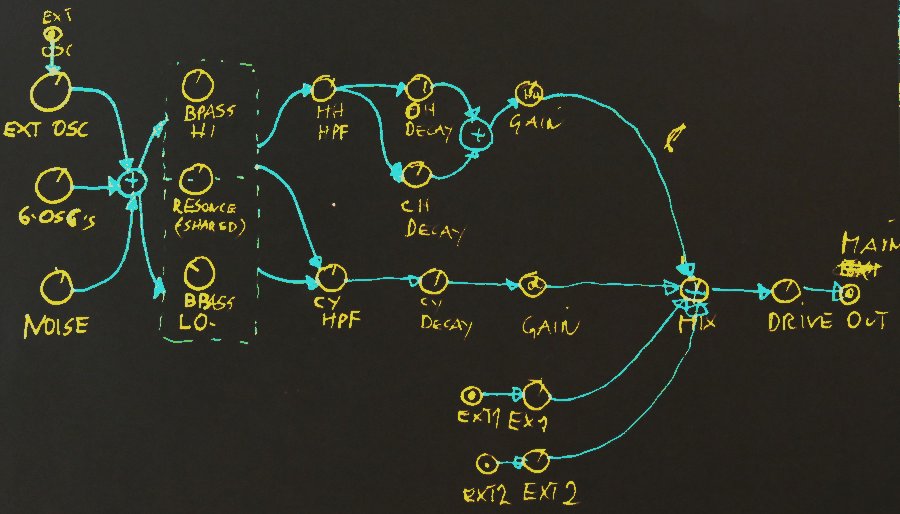 EXT
OSC
EXT OSC
6-OSG's
NOISE
+
BPASS
HI
RESONCE
(SHARED)
BPASS
LO-
HH
HPF
OH
DECAY
+
HH
GAIN
CH
DECAY
CY
HPF
CY
DECAY
GAIN
MIX
DRIVE
MAIN
OUT
EXT1
EX1
EXT2
EXT2